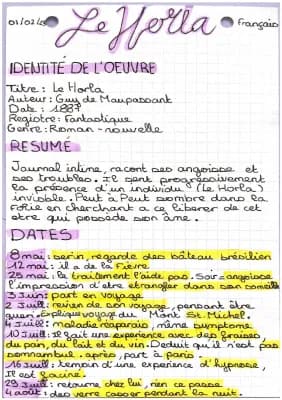 01/02/
Le Horla
Français
IDENTITÉ DE L'OEUVRE
Titre : Le Horla
Auteur : Guy de Maupassant
Date : 1887
Registre : Fantastique
Genre : Roman - nouvelle
RESUMÉ
Journal intime, racont ses angoisse et
ses troubles. Il sent progressivement
la présence d'un individu (Le Horla)
invisible. Peut à Peut sombre dans la
folie en cherchant a ce liberer de cet
etre qui possède son âme.
DATES
8 mai : serin, regarde des bâteau brésilien
12 mai : il a de la Fièvre
25 mai : le traitement l'aide pas. Soir = angoisse
l'impression d'etre etrangler dans son sommeil
3 Juin : part en voyage
2 Juil : revien de son voyage, pensant être
gueri. Explique voyage du Mont St. Michel.
4 Juill : maladie reaparais, même symptome
10 Juil : il fait une experience avec des fraises,
du pain, du lait et du vin. Deduit qu'il n'est pas
somnambul. après, part à paris.
16 Juil : temoin d'une experience d'hypnose,
Il est fasciné.
29 Juil : retourne chez lui, rien ce passe
4 août : des verre casser pendant la nuit.